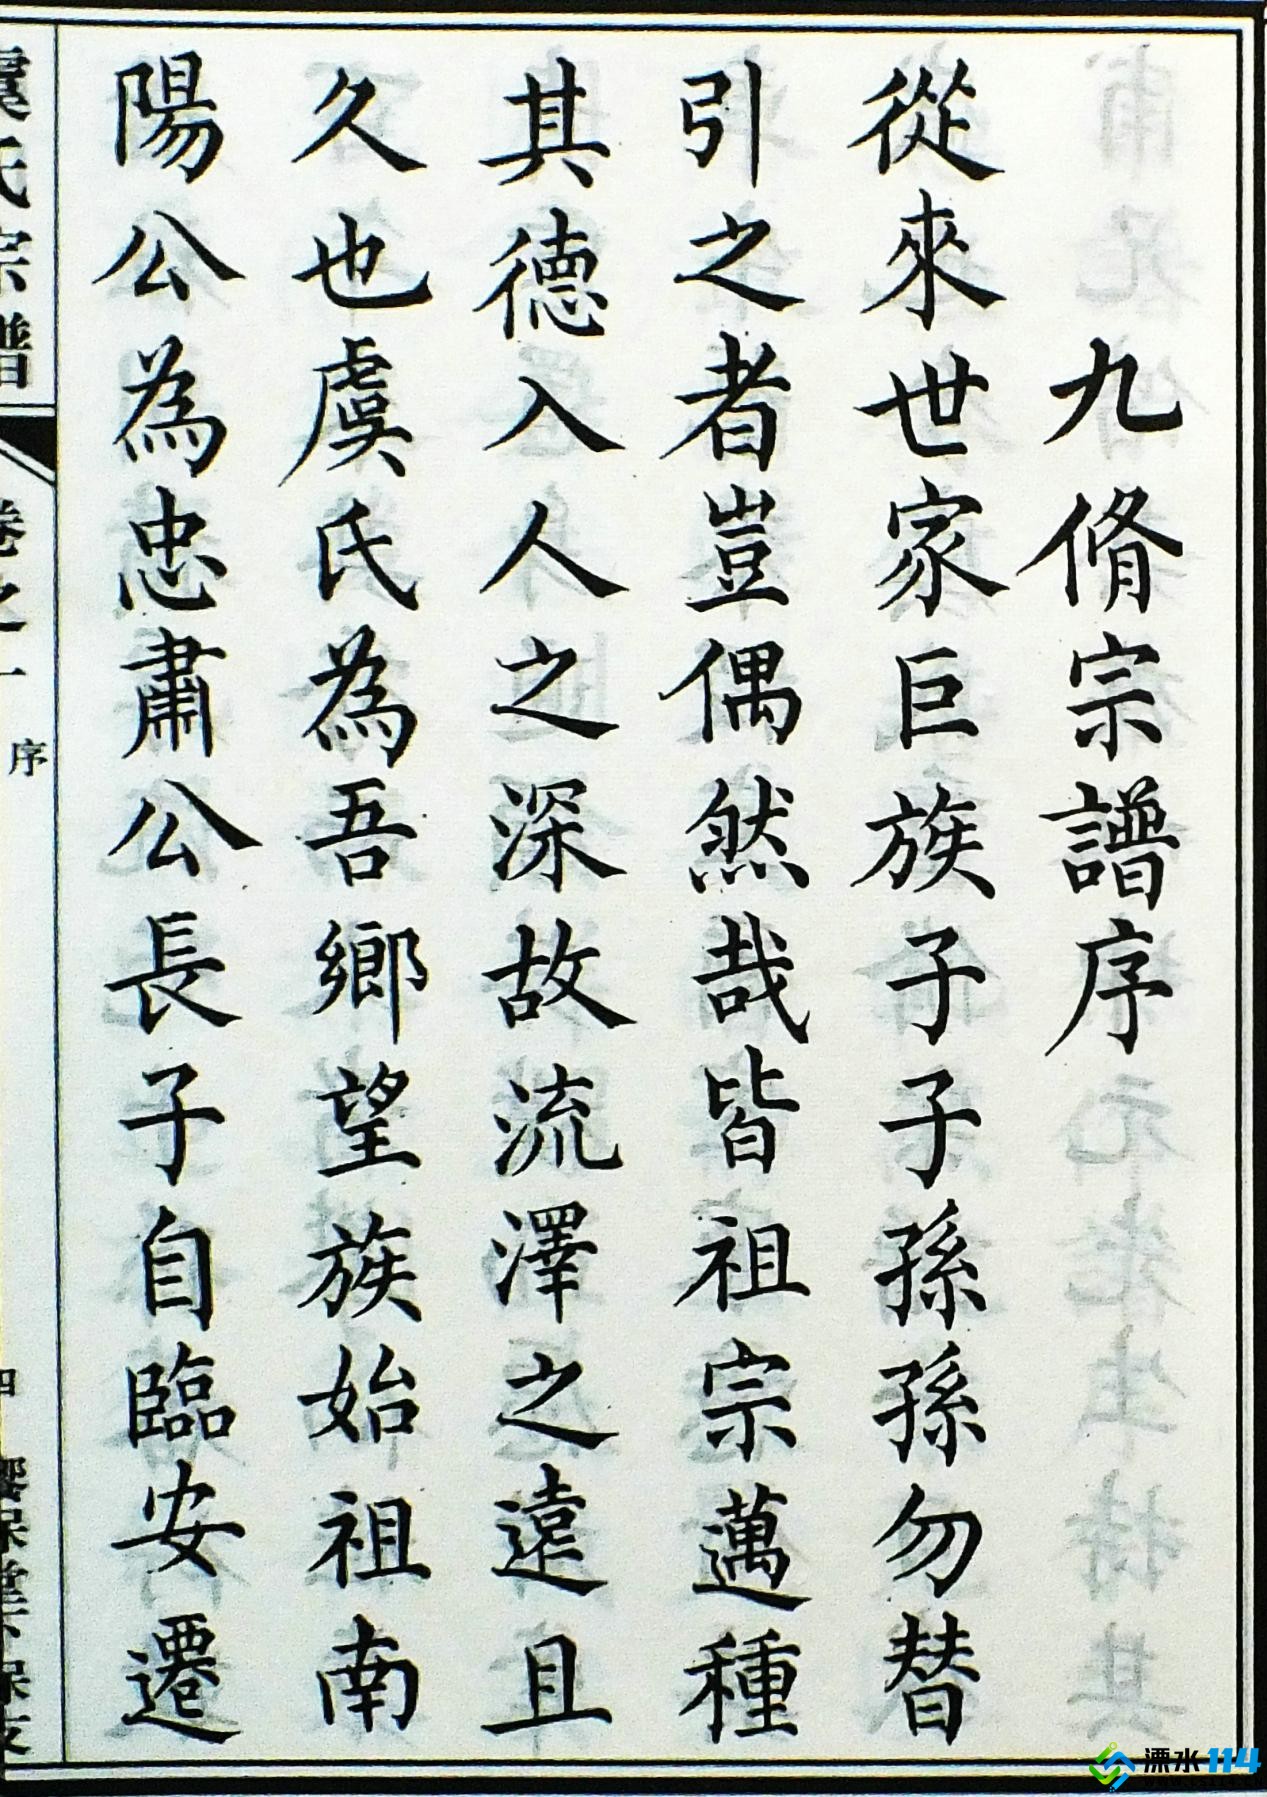 九脩宗譜序
從來世家巨族子子孫孫勿替
引之者豈偶然哉皆祖宗邁種
其德入人之深故流澤之遠且
久也虞氏為吾鄉望族始祖南
陽公為忠肅公長子自臨安遷
虞氏宗譜
卷之一
序
四
保堂下保支
溧水114